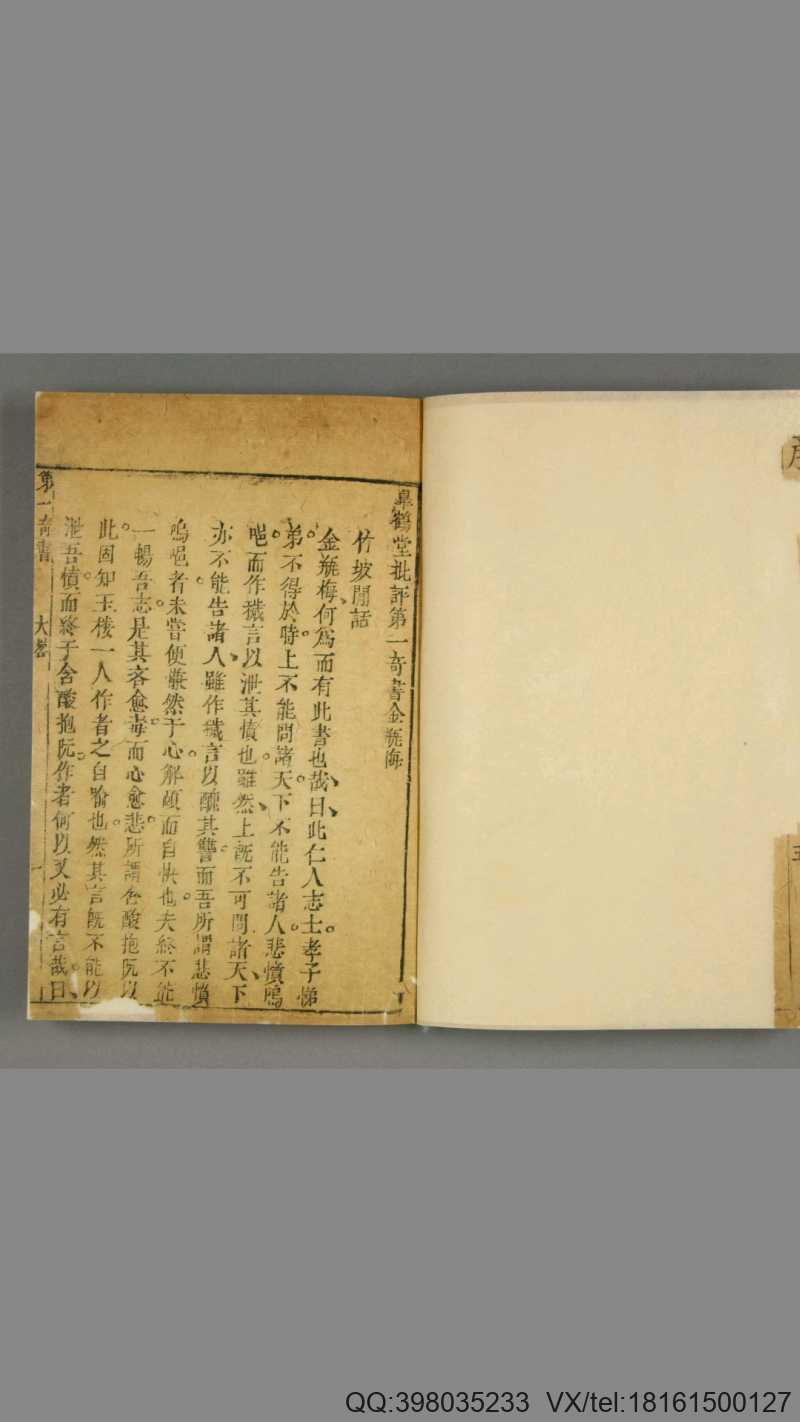 皐鶴堂批評第一奇書金瓶梅
竹坡閒話
金瓶梅何爲而有此書也哉曰此仁人志士孝子悌
弟不得於時上不能問諸天下不能告諸人悲憤嗚
唈而作穢言以泄其憤也雖然上既不可問諸天下
亦不能告諸人雖作穢言以醜其讐而吾所謂悲憤
嗚唈者未嘗便慊然于心解頤而自快也夫終不能
一暢吾志是其言愈毒而心愈悲所謂含酸抱阮以
此固知玉楼一人作者之自喻也然其言既不能以
泄吾憤而終于含酸抱阮作者何以又必有言哉曰
第一奇書
QQ:398035233 VX/tel:18161500127